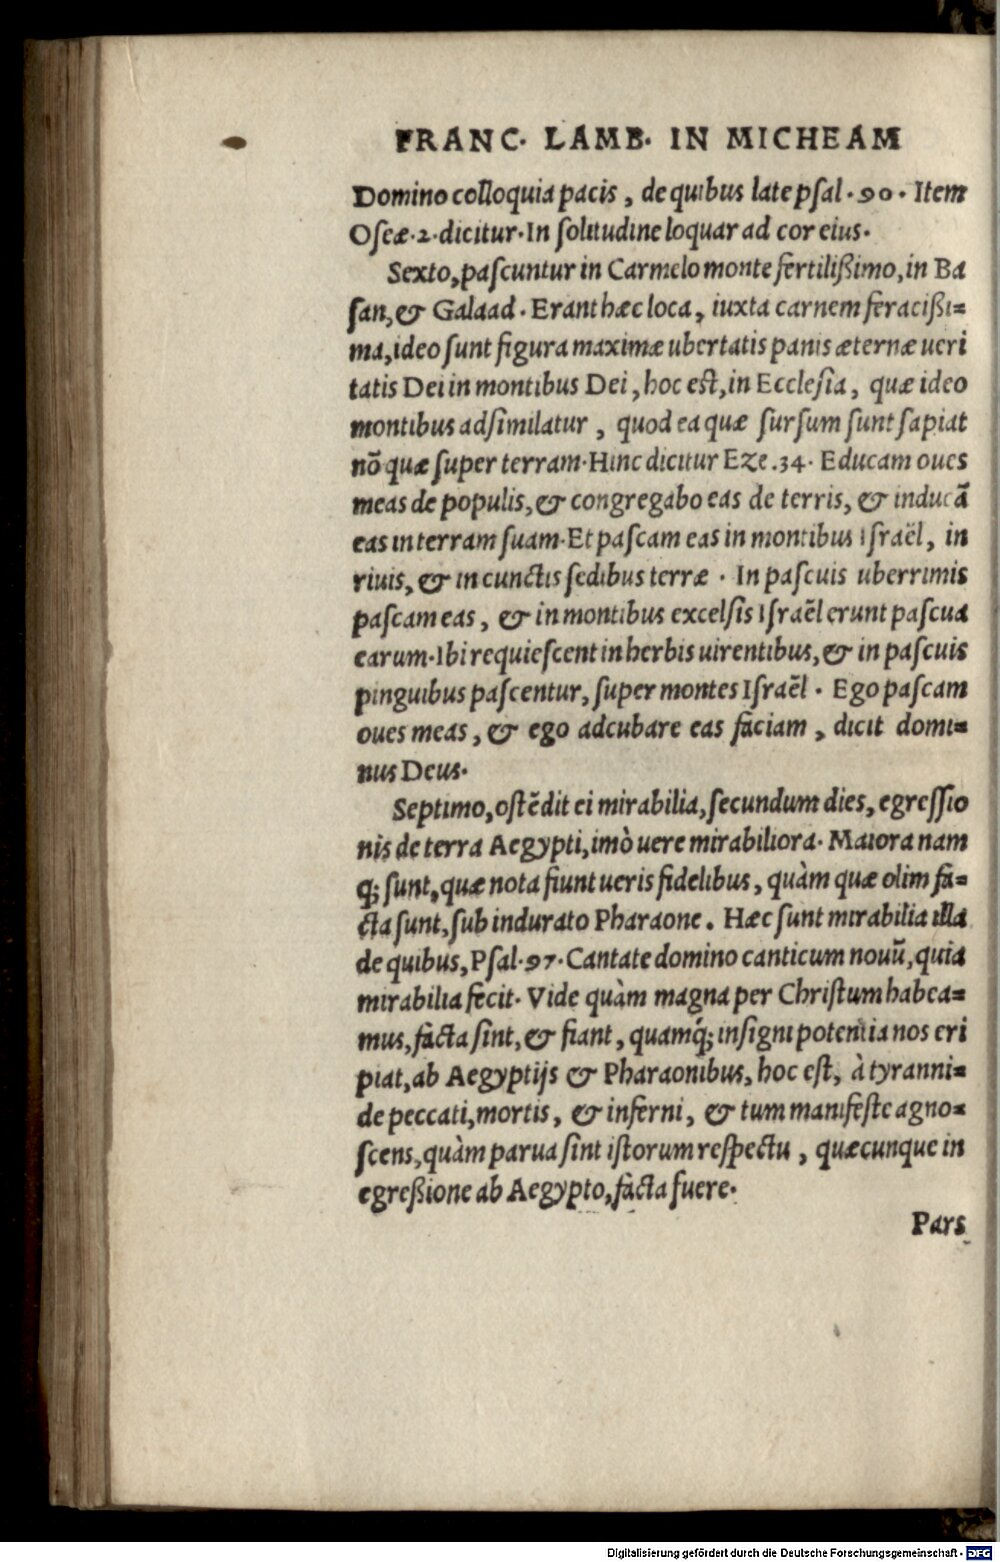 FRANC. LAMB. IN MICHEAM
Domino colloquia pacis, de quibus late psal. 90. Item
Oseæ. 2. dicitur. In solitudine loquar ad cor eius.
Sexto, pascuntur in Carmelo monte fertilißimo, in Ba
san, & Galaad. Erant hæc loca, iuxta carnem feracißi=
ma, ideo sunt figura maximæ ubertatis panis æternæ ueri
tatis Dei in montibus Dei, hoc est, in Ecclesia, quæ ideo
montibus adsimilatur, quod ea quæ sursum sunt sapiat
nō quæ super terram. Hinc dicitur Eze. 34. Educam oues
meas de populis, & congregabo eas de terris, & inducā
eas in terram suam. Et pascam eas in montibus Israël, in
riuis, & in cunctis sedibus terræ. In pascuis uberrimis
pascam eas, & in montibus excelsis Israẽl erunt pascua
earum. Ibi requiescent in herbis uirentibus, & in pascuis
pinguibus pascentur, super montes Israẽl. Ego pascam
oues meas, & ego adcubare eas faciam, dicit domi=
nus Deus.
Septimo, ostẽdit ei mirabilia, secundum dies, egressio
nis de terra Aegypti, imò uere mirabiliora. Maiora nam
q; sunt, quæ nota fiunt ueris fidelibus, quàm quæ olim fa=
cta sunt, sub indurato Pharaone. Hæc sunt mirabilia illa
de quibus, Psal. 97. Cantate domino canticum nouũ, quia
mirabilia fecit. Vide quàm magna per Christum habea=
mus, facta sint, & fiant, quamq́; insigni potentia nos eri
piat, ab Aegyptijs & Pharaonibus, hoc est, à tyranni=
de peccati, mortis, & inferni, & tum manifeste agno=
scens, quàm parua sint istorum respectu, quæcunque in
egreßione ab Aegypto, facta fuere.
Pars
Digitalisierung gefördert durch die Deutsche Forschungsgemeinschaft - DFG